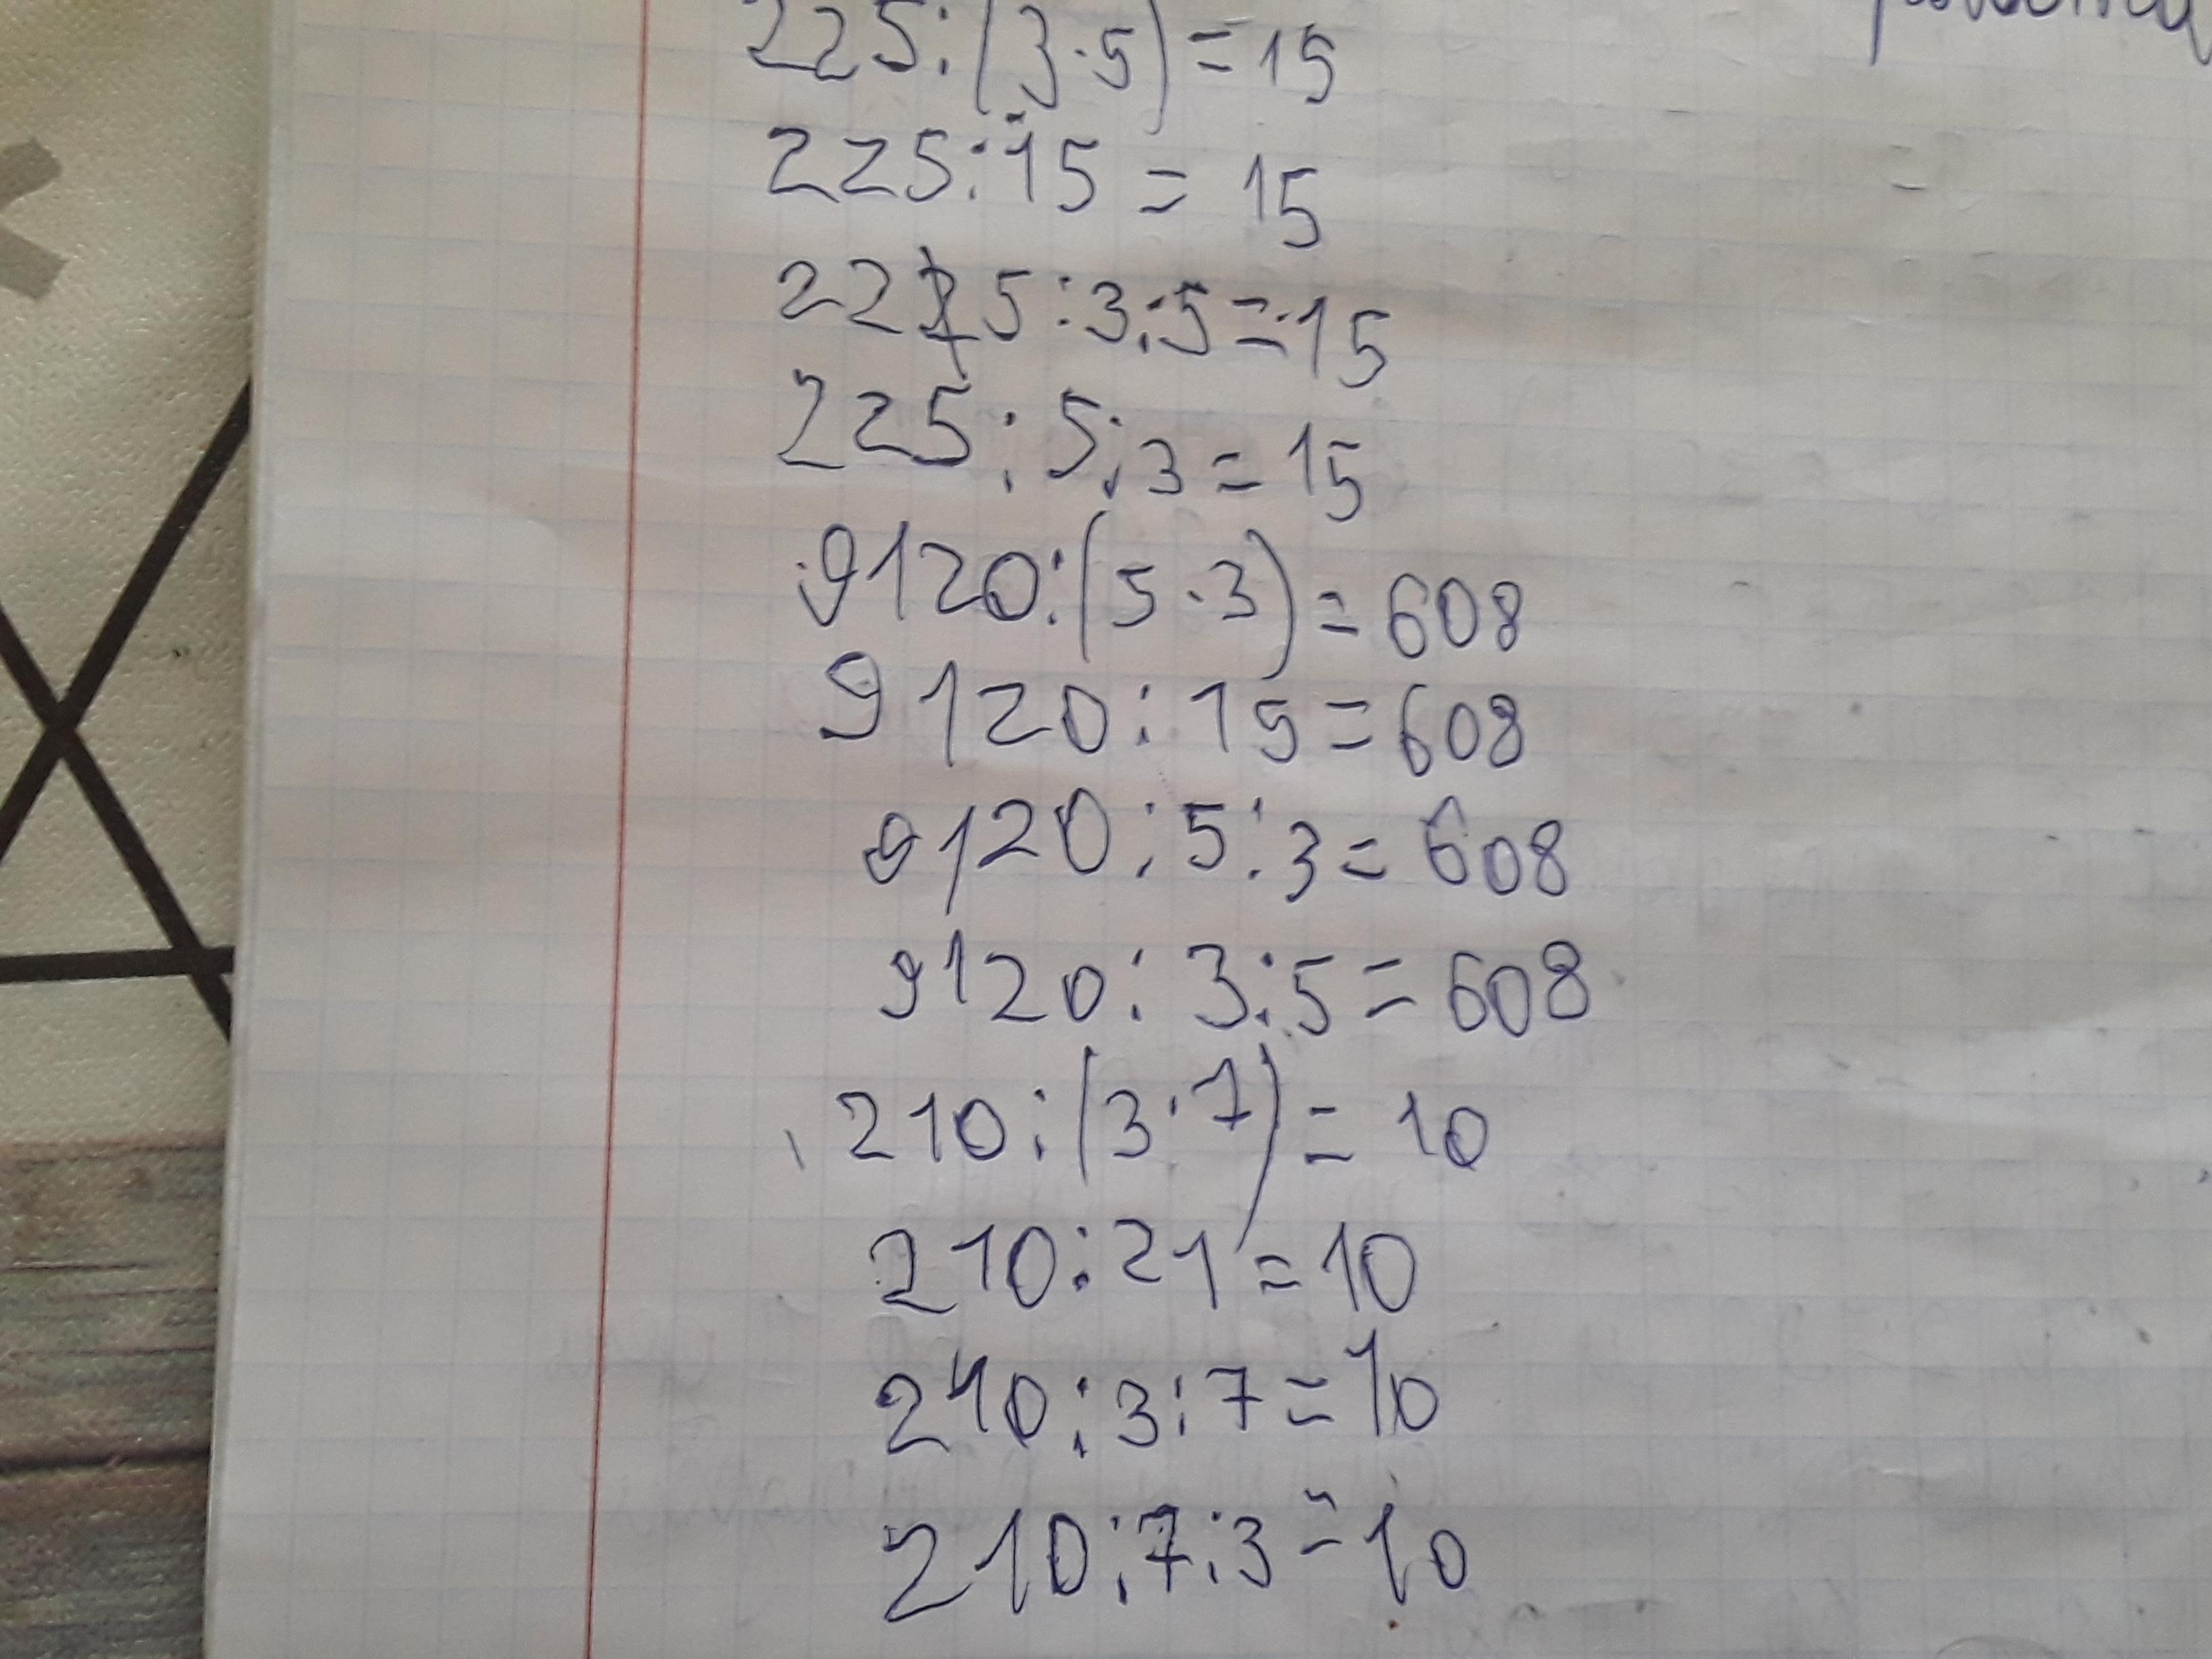 225:(3·5)=15
225:15=15
225:3:5=15
225:5:3=15
9120:(5·3)=608
9120:15=608
9120:5:3=608
9120:3:5=608
210:(3·7)=10
210:21=10
210:3:7=10
210:7:3=10